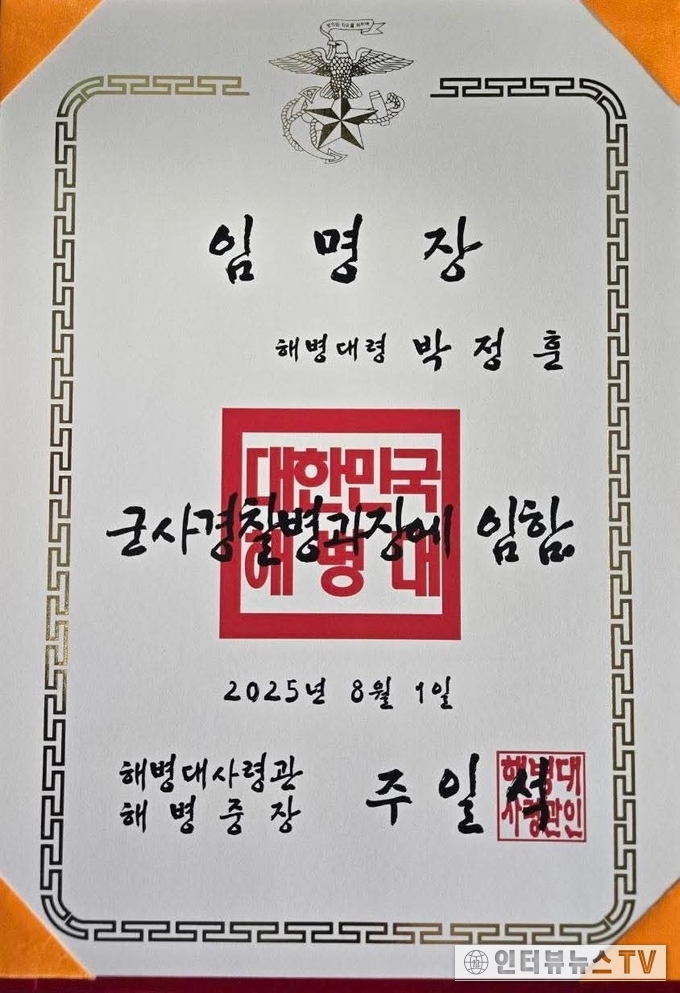 임명장
해병대령 박정훈
대한민국
해병대
군사경찰병과장에 임함
2025년 8월 1일
해병대사령관
해병중장
주일석
해병대
사령관인
인터뷰뉴스TV